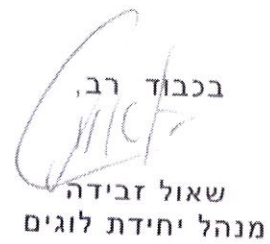 בכבוד רב,
שאול זבידה
מנהל יחידת לוגים